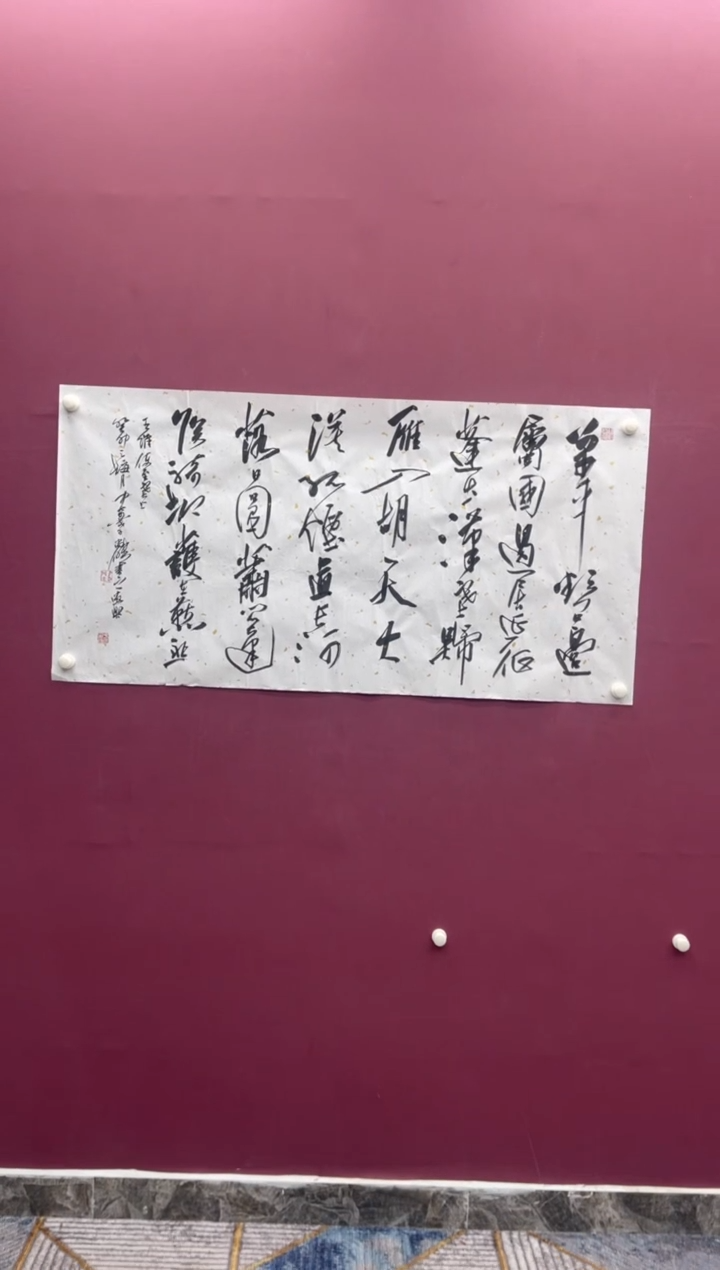 單車欲問邊
屬國過居延征
蓬出漢塞歸
雁入胡天大
漠孤煙直長河
落日圓蕭關逢
候騎都護在燕然
王維使至塞上
癸卯